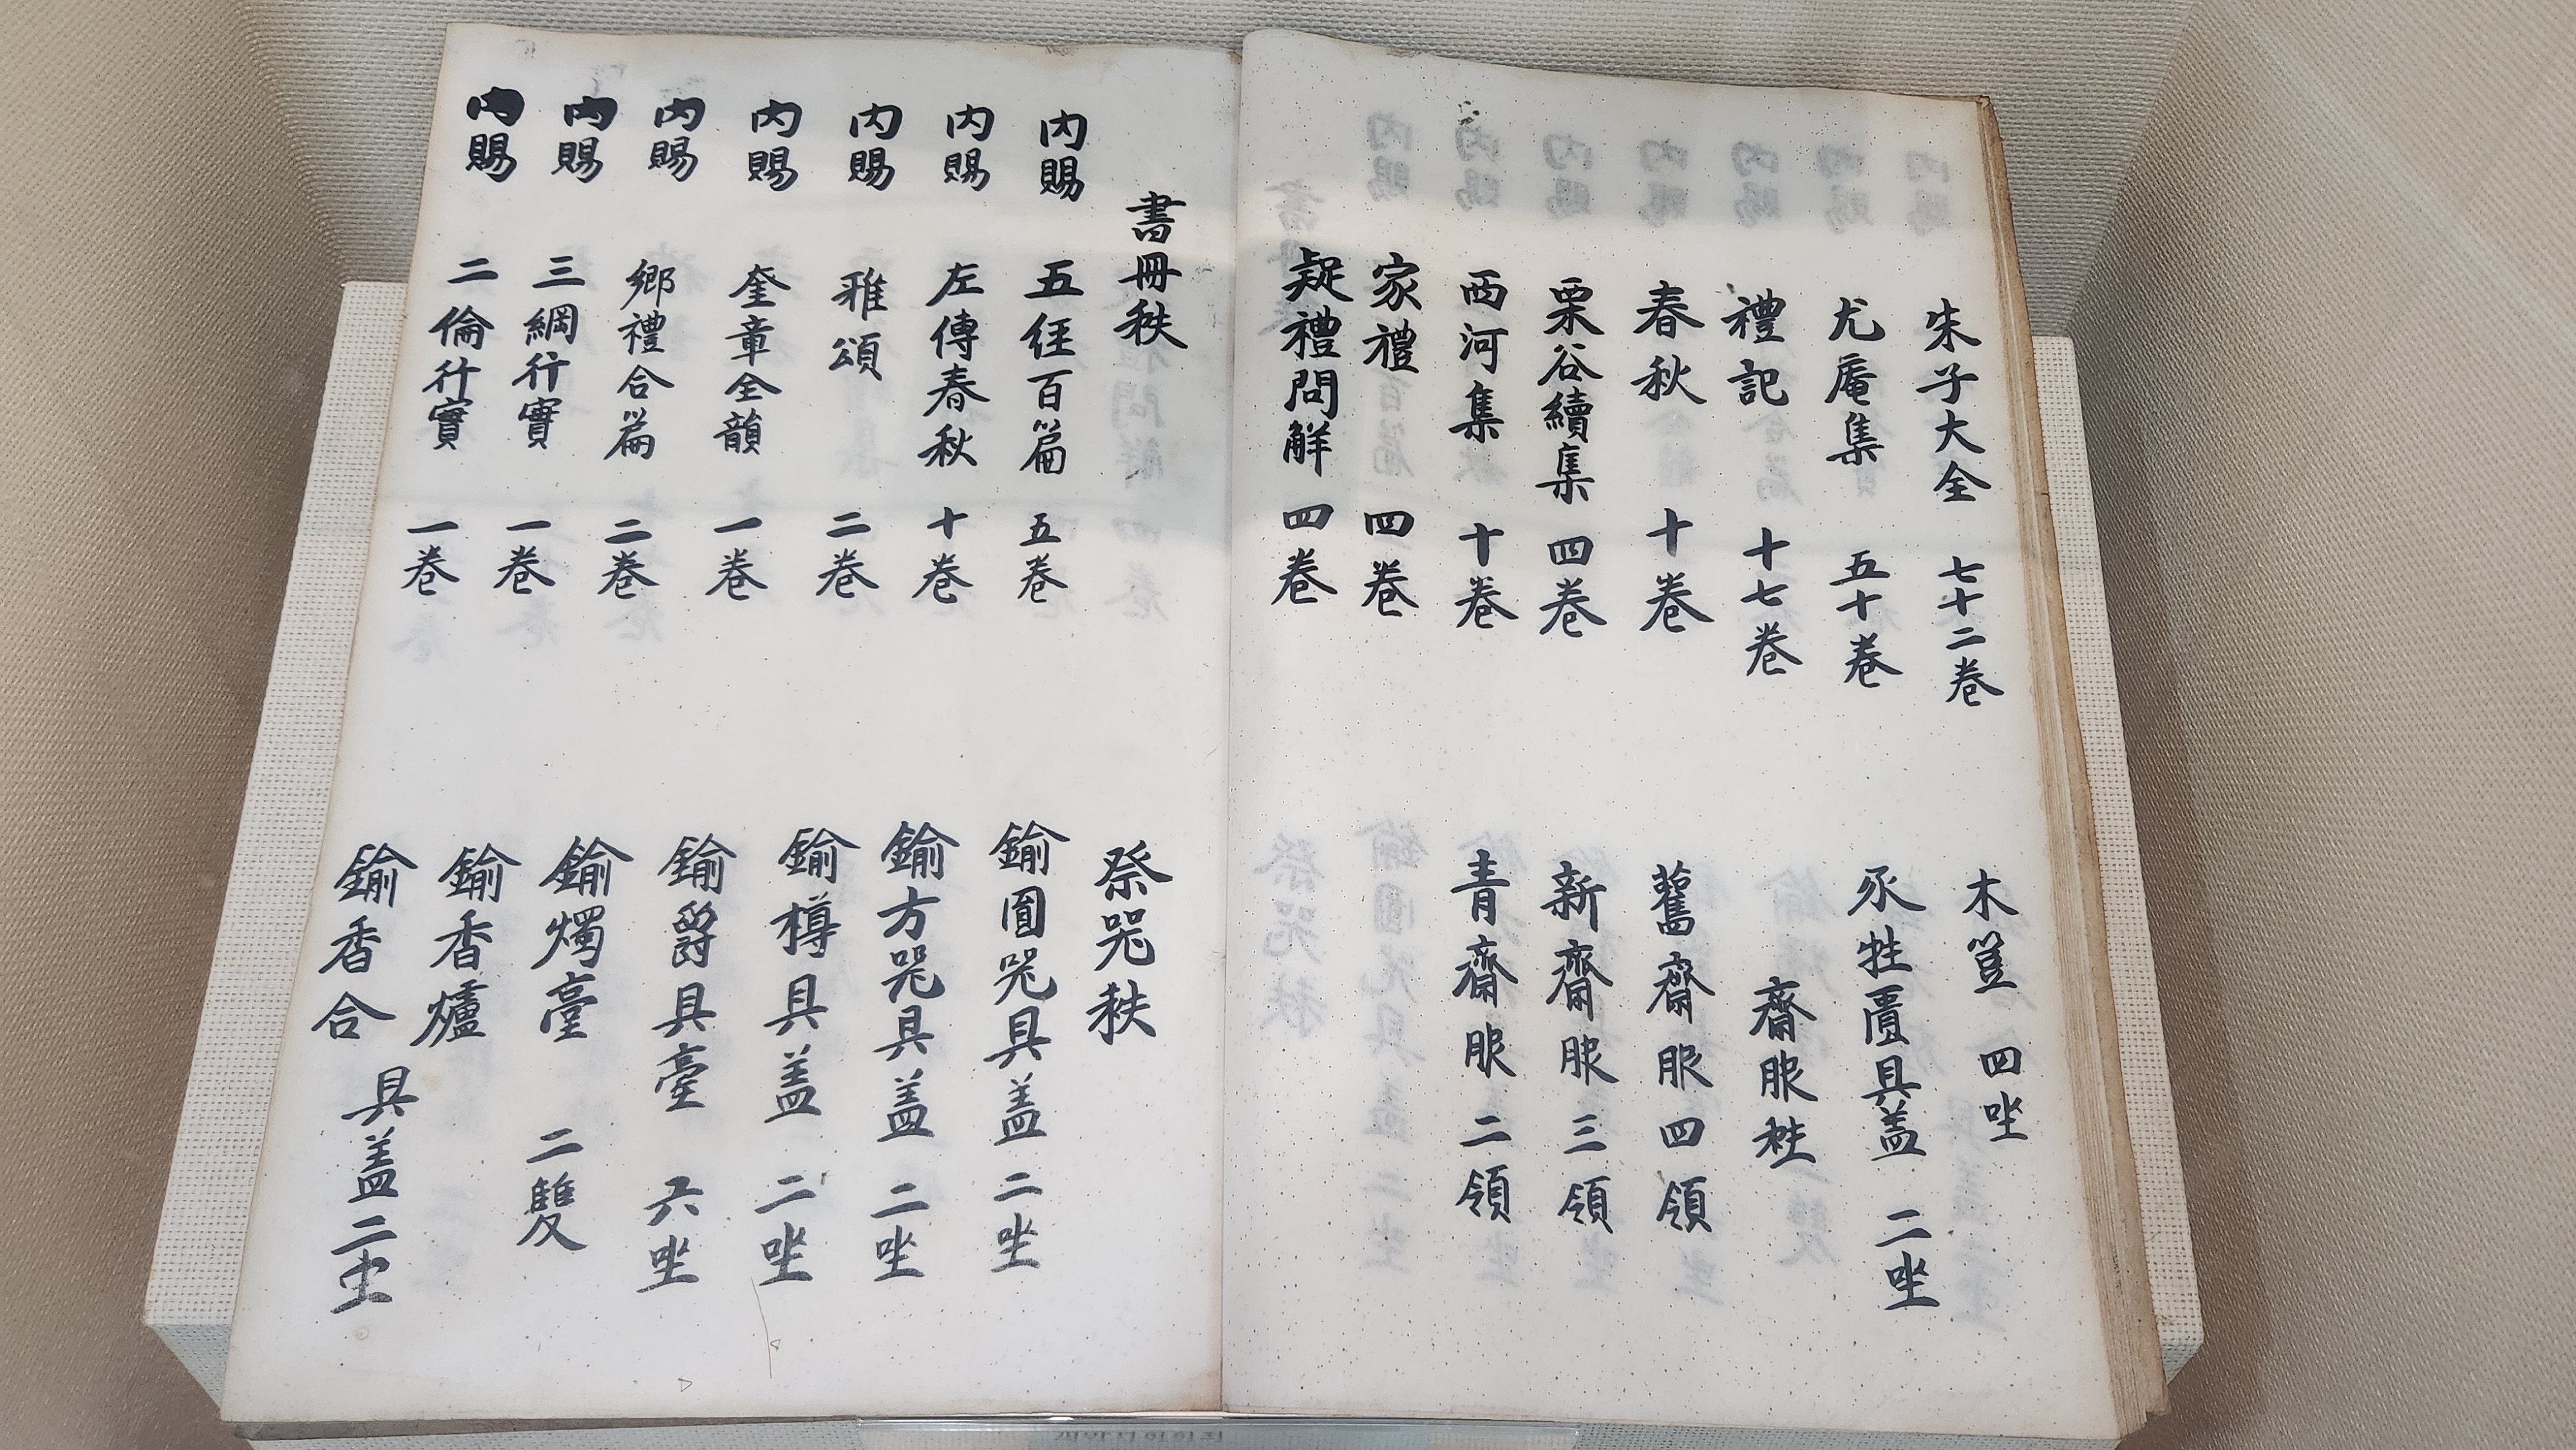 朱子大全 七十二卷
尤庵集 五十卷
禮記 十七卷
春秋 十卷
栗谷續集 四卷
西河集 十卷
家禮 四卷
疑禮問解 四卷
木簋 四坐
承牲匱具盖 二坐
齋服秩
舊齋服四領
新齋服三領
青齋服二領
書冊秩
內賜 五経百篇 五卷
內賜 左傳春秋 十卷
內賜 雅頌 二卷
內賜 奎章全韻 一卷
內賜 鄉禮合篇 二卷
內賜 三綱行實 一卷
內賜 二倫行實 一卷
祭器秩
鍮圓器具盖二坐
鍮方器具盖二坐
鍮樽具盖二坐
鍮爵具臺 六坐
鍮燭臺 二雙
鍮香爐
鍮香合 具盖二坐